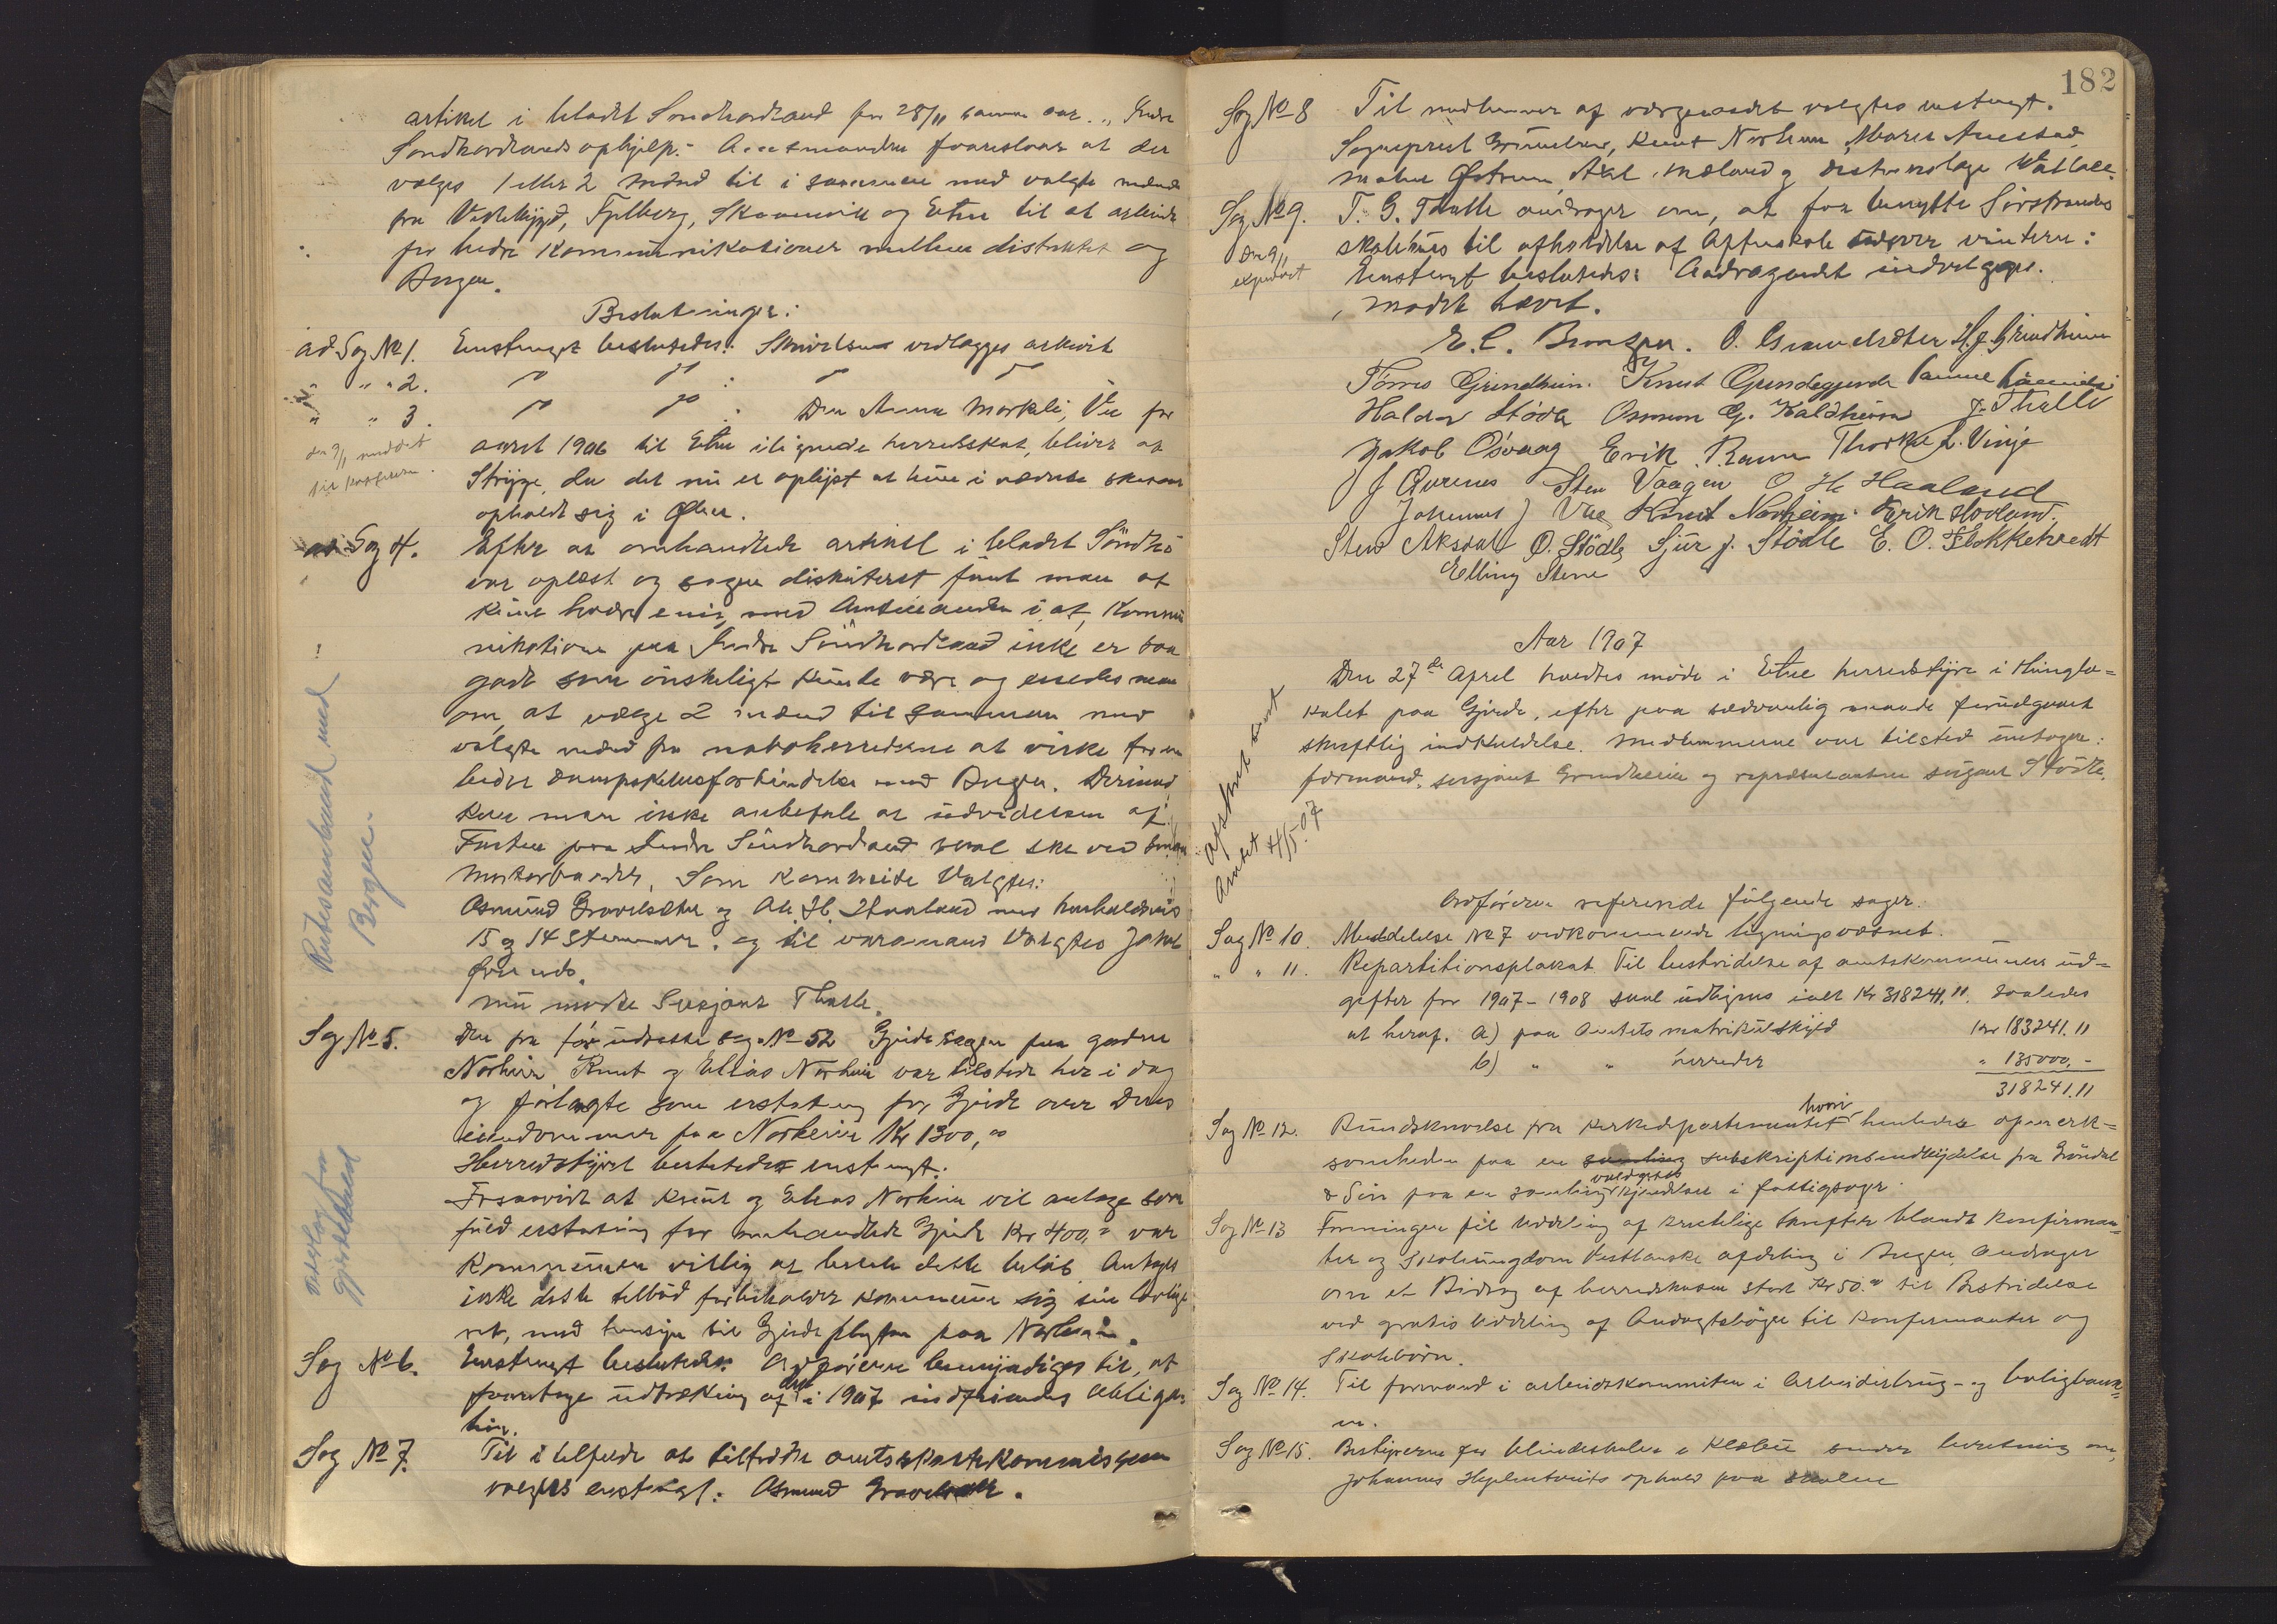 artikel i bladet Søndhordland for 28/11 samme aar. "Indre
Søndhordlands ophjelp." Amtmanden foreslaar at der
vælges 1 eller 2 mænd til i sammen med valgte mænd
fra Vikebygd, Fjelberg, Skaanevik og Etne til at arbeide
for bedre Kommunikationer mellem distriktet og
Bergen.
Beslutninger:
ad Sag No 1. Enstemmigt besluttedes: Skrivelsen vedlægges arkivet
" " " 2. " " : " "
" " 3. " " : Den Anna Markli, Vee for
den 9/1 meddelt
til kassereren.
aaret 1906 til Etne ilignede herredsskat, bliver at
Stryge, da det nu er oplyst at hun i nævnte skatteaar
opholdt sig i Ølen.
ad Sag 4. Efter at omhandlede artikel i bladet Søndh.
var oplæst og sagen diskuteret fant man at
kunne være enig med Amtmanden i at, Kommu
nikationen paa Indre Søndhordland ikke er saa
godt som ønskeligt kunde være og enedes man
om, at vælge 2 mænd til sammen med
valgte mænd fra naboherrederne at virke for en
bedre dampskibsforbindelse med Bergen. Derimod
kan man ikke anbefale at udvidelsen af
Farten paa Indre Søndhordland skal ske ved
Motorbaader. Som Komiteide Valgtes:
Rutesamband med
Bergen.
Osmund Gravelsæter og O. H. Haaland med henholdsvis
15 og 14 Stemmer. og til varamand Valgtes Jakob
Østrands.
nu mødte Sersjant Thalle.
Sag No 5. Den fra før udsatte sag No 52 Gjerdesagen paa gaarden
Norheim, Knut og Elias Norheim var tilstede her i dag
og forlangte som erstatning for Gjerde over Deres
eiendommer paa Norheim Kr 1300,00
Herredstyret besluttede enstemmigt:
Forsaavidt at Knut og Elias Norheim vil antage som
fuld erstatning for omhandlede Gjerde Kr 400,00 var
Kommunen villig at betale dette beløb. Antages
ikke dette tilbud forbeholder Kommunen sig sin lovlige
ret, med hensyn til Gjerdepligten paa Norheim.
Sag No 6. Enstemmigt besluttedes: Ordføreren bemyndiges til, at
foretage udtrækning af de i 1907 indfriende obliga-
tion.
Sag No 7. Til i tilfælde at tiltræde amtsskattekommissjonen
valgtes enstemmigt: Osmund Gravelsæter.
182
Sag No 8 Til medlemmer af værgeraadet valgtes enstemmigt.
Sogneprest Grimelund, Knut Norheim, Maria Auestad,
Malene Østrem, Aksel Mæland og distriktslæge Wallace.
Sag No 9. T. G. Thalle andrager om, at faa benytte Sørstrandes
den 9/1
expederet
skolehus til afholdelse af Aftenskole udover vinteren:
Enstemmigt besluttedes: Andragendet indvilgges.
Mødet hævet.
E. C. Bronger. O. Gravelsæter H. J. Grindheim
Tørris Grindheim. Knut Grindegjerde
Haldor Støde Osmun G. Kaldheim J. Thalle
Jakob Osvaag Erik Ravn Thorkel L. Vinje
J Qvernes Sten Vaagen O H Haaland
Johannes J Vae Knut Norheim. Erik Hovland.
Sten Aksdal O. Stødle Sjur J. Stødle E. O. Flokketvedt
Elling Stene
Aar 1907
Den 27de April holdtes møde i Etne herredstyre i thinglo-
kalet paa Gjerde, efter paa sædvanlig maade forudgaaet
skriftlig indkaldelse. Medlemmerne var tilsted undtagen:
formand, sersjant Grindheim og repræsentanten sersjant Stødle.
afskrift sendt
Amtet 4/5. 07
Ordføreren refererede følgende sager.
Sag No 10. Meddelelse No 7 vedkommende ligningsvæsnet.
" " 11. Repartitionsplakat. Til bestridelse af amtskommunens ud-
gifter for 1907-1908 skal udlignes ialt Kr 318241,11. saaledes
at heraf. a) paa Amtets matrikulskyld Kr 183241.11
b) " " herreder " 135000. -
318241.11
Sag No 12. Rundskrivelse fra Kirkedepartementet hvori henledes opmerk-
somheden paa en samling subskriptionsindbydelse fra Grøndal
& Søn paa en samling voldgifts kjendelser i fattigsager.
Sag No 13 Foreningen til Uddeling af kristelige Skrifter blandt Konfirman-
ter og Skoleungdom Vestlanske afdeling i Bergen, andrager
om et Bidrag af herredskassen stort Kr 50.00 til Bestridelse
ved gratis Uddeling af Andagtsbøger til Konfirmanter og
Skolebørn.
Sag No 14. Til formand i arbeidskommiteen i Arbeiderbrug- og boligbank-
en.
Sag No 15. Bestyreren for blindeskolen i Klæbu sender beretning om,
Johannes ophold paa skolen
overlag for
gjerdehold